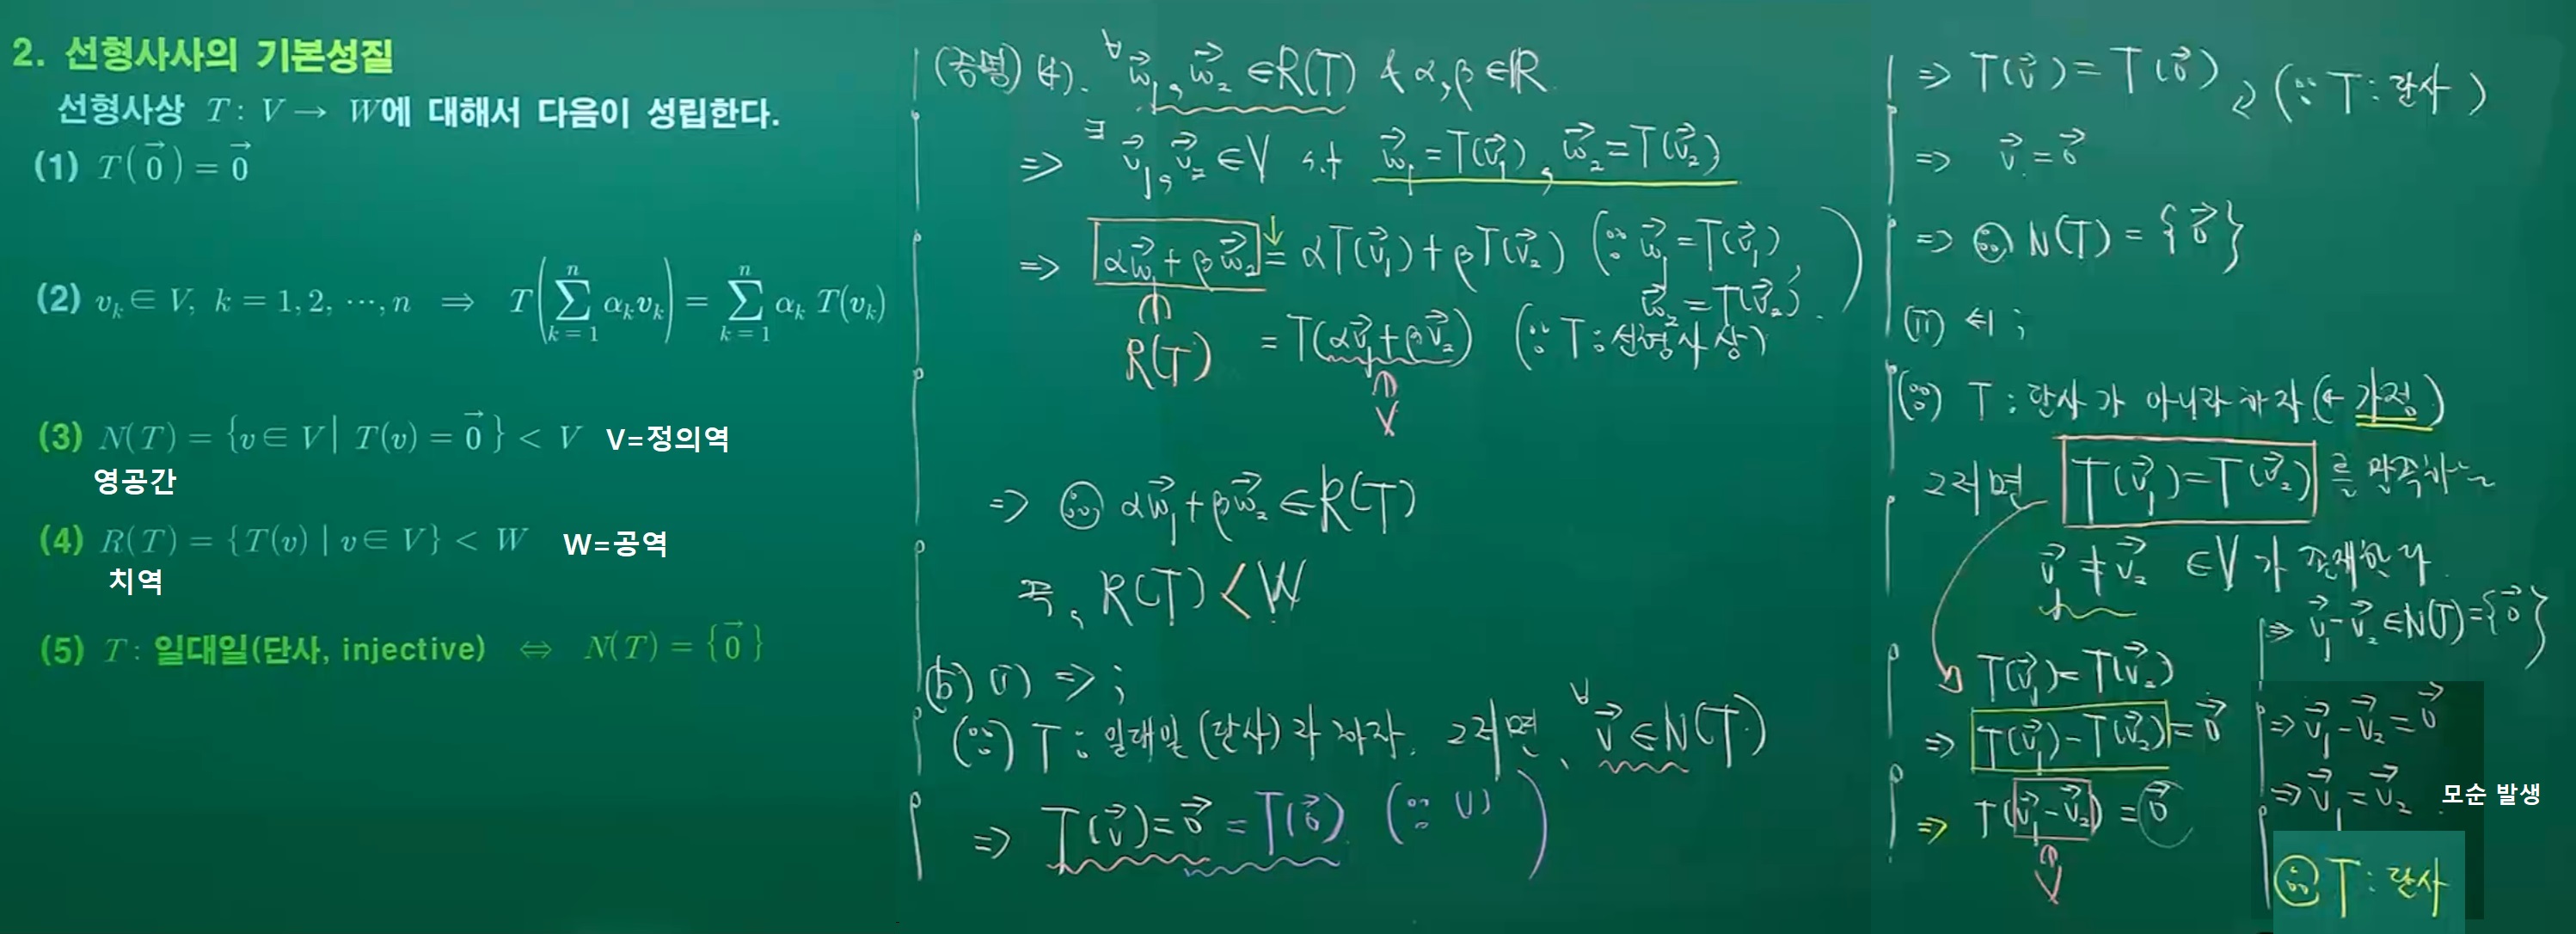 2. 선형사사의 기본성질
선형사상 T : V → W에 대해서 다음이 성립한다.
(1) T(\vec{0}) = \vec{0}
(2) v_k ∈ V, k = 1, 2, ⋯, n ⇒ T(∑_{k=1}^{n} α_k v_k) = ∑_{k=1}^{n} α_k T(v_k)
(3) N(T) = {v ∈ V | T(v) = \vec{0}} < V V=정의역
영공간
(4) R(T) = {T(v) | v ∈ V} < W W=공역
치역
(5) T : 일대일(단사, injective) ⇔ N(T) = {\vec{0}}
(증명) (4). ∀\vec{w}_1, \vec{w}_2 ∈ R(T) & α, β ∈ ℝ.
⇒ ∃\vec{v}_1, \vec{v}_2 ∈ V s.t \vec{w}_1 = T(\vec{v}_1), \vec{w}_2 = T(\vec{v}_2)
⇒ α\vec{w}_1 + β\vec{w}_2 = αT(\vec{v}_1) + βT(\vec{v}_2) (∵ \vec{w}_1 = T(\vec{v}_1),
\vec{w}_2 = T(\vec{v}_2).)
R(T) = T(α\vec{v}_1 + β\vec{v}_2) (∵ T : 선형사상)
V
⇒ ∴ α\vec{w}_1 + β\vec{w}_2 ∈ R(T)
즉, R(T) < W
(5) (i) ⇒ ;
(∵) T : 일대일 (단사)라 하자. 그러면, ∀\vec{v} ∈ N(T)
⇒ T(\vec{v}) = \vec{0} = T(\vec{0}) (∵ (1))
⇒ T(\vec{v}) = T(\vec{0}) (∵ T : 단사)
⇒ \vec{v} = \vec{0}
⇒ ∴ N(T) = {\vec{0}}
(ii) ⇐ ;
(∵) T : 단사가 아니라 하자 (← 가정)
그러면 T(\vec{v}_1) = T(\vec{v}_2) 를 만족하는
\vec{v}_1 ≠ \vec{v}_2 ∈ V 가 존재한다.
T(\vec{v}_1) = T(\vec{v}_2)
⇒ T(\vec{v}_1) - T(\vec{v}_2) = \vec{0}
⇒ T(\vec{v}_1 - \vec{v}_2) = \vec{0}
V
⇒ \vec{v}_1 - \vec{v}_2 ∈ N(T) = {\vec{0}}
⇒ \vec{v}_1 - \vec{v}_2 = \vec{0}
⇒ \vec{v}_1 = \vec{v}_2. 모순 발생
∴ T : 단사